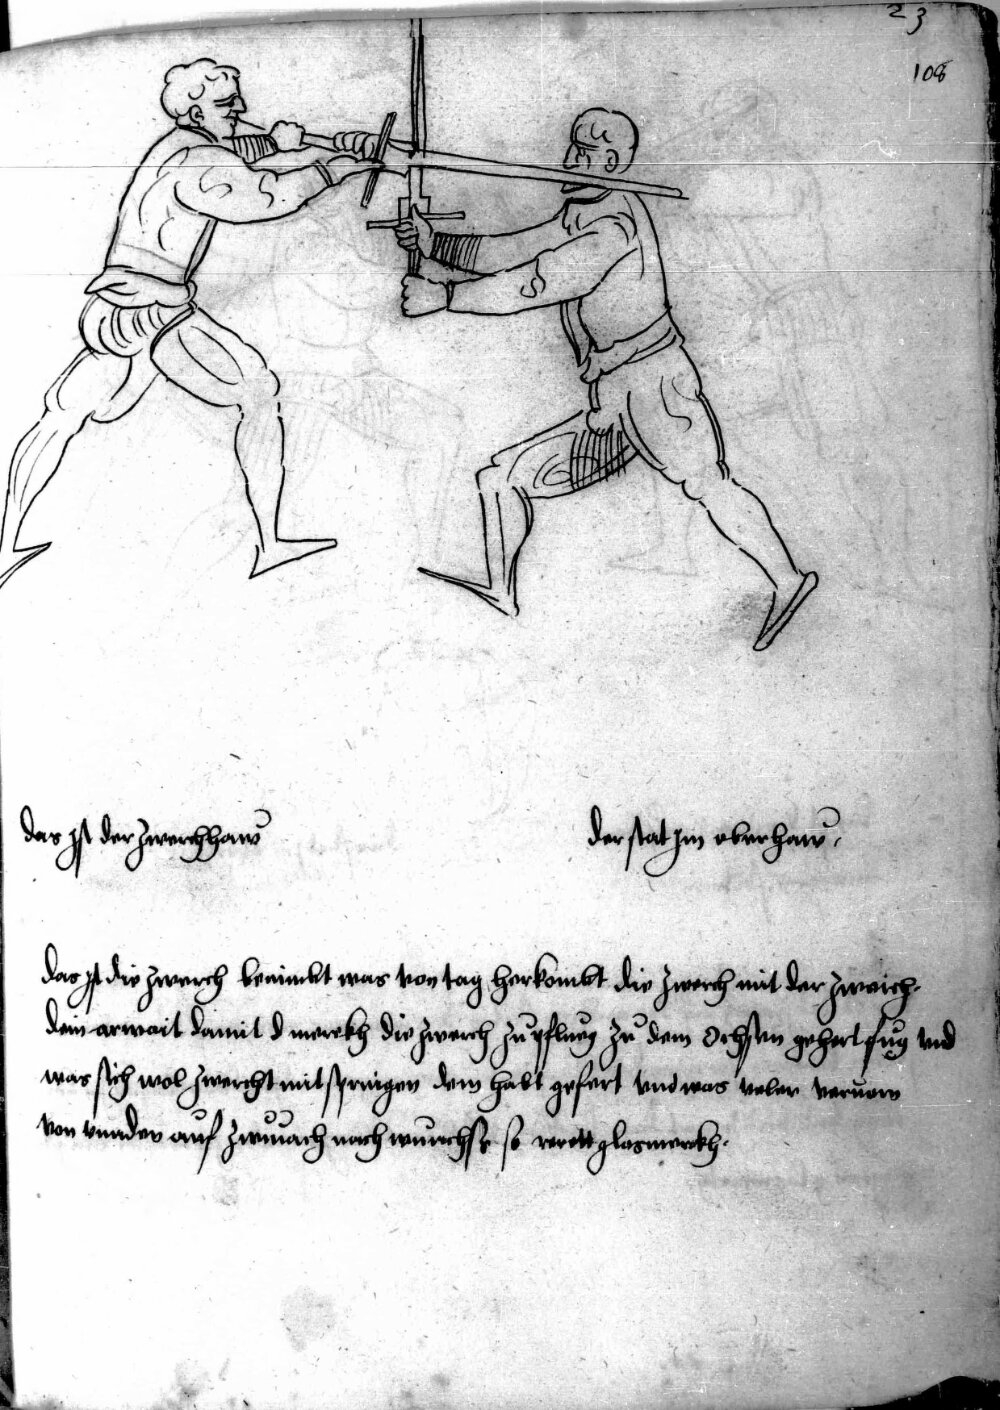 23
108
das ist der zwerchhaw
der stat Im oberhaw.
das ist die zwerch benimbt was von tag herkombt die zwerch mit der zwich.
dein arwait damit d merckh die zwerch zu pflug zu dem Ochsen gehert fug vnd
was sich wol zwercht mit springen dem habt gefert vnd was veler
von vnnden auf nach wunsch so glasmerckh.